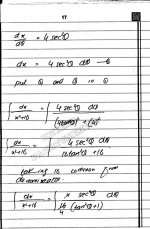 17
dx/dθ = 4 sec²θ
dx = 4 sec²θ dθ
put and in
∫ dx/x²+16 = ∫ 4 sec²θ dθ / (4tanθ)² + (4)²
∫ dx/x²+16 = ∫ 4 sec²θ dθ / 16tan²θ + 16
taking 16 common from
denominator
∫ dx/x²+16 = ∫ 4 sec²θ dθ / 16 (tan²θ+1)
4